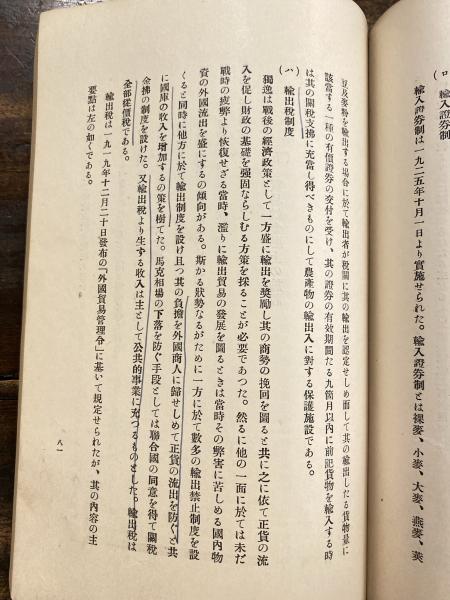 (ロ) 輸入證券制
輸入證券制は一九二五年十月一日より實施せられた。輸入證券制とは裸麥、小麥、大麥、燕麥、莢
豆及麥粉を輸出する場合に於て輸出者が税關に其の輸出を認定せしめ而して其の輸出したる貨物量に
該當する一種の有價證券の交付を受け、其の證券の有效期間たる九箇月以内に前記貨物を輸入する時
は其の關税支拂に充當し得べきものにして農產物の輸出入に對する保護施設である。
(ハ) 輸出税制度
獨逸は戰後の經濟政策として一方盛に輸出を奬勵し其の商勢の挽回を圖ると共に之に依て正貨の流
入を促し財政の基礎を强固ならしむる方策を採ることが必要であつた。然るに他の一面に於ては未だ
戰時の疲弊より恢復せざる當時、濫りに輸出貿易の發展を圖るときは當時その弊害に苦しめる國內物
資の外國流出を盛にするの傾向がある。斯かる狀勢なるがために一方に於て數多の輸出禁止制度を設
くると同時に他方に於て輸出制度を設け且つ其の負擔を外國商人に歸せしめて正貨の流出を防ぐと共
に國庫の收入を增加するの策を樹てた。馬克相場の下落を防ぐ手段としては聯合國の同意を得て關税
金拂の制度を設けた。又輸出税より生ずる收入は主として公共的事業に充つるものとした。輸出税は
全部從價税である。
輸出税は一九一九年十二月二十日發布の「外國貿易管理令」に基いて規定せられたが、其の內容の主
要點は左の如くである。
八一